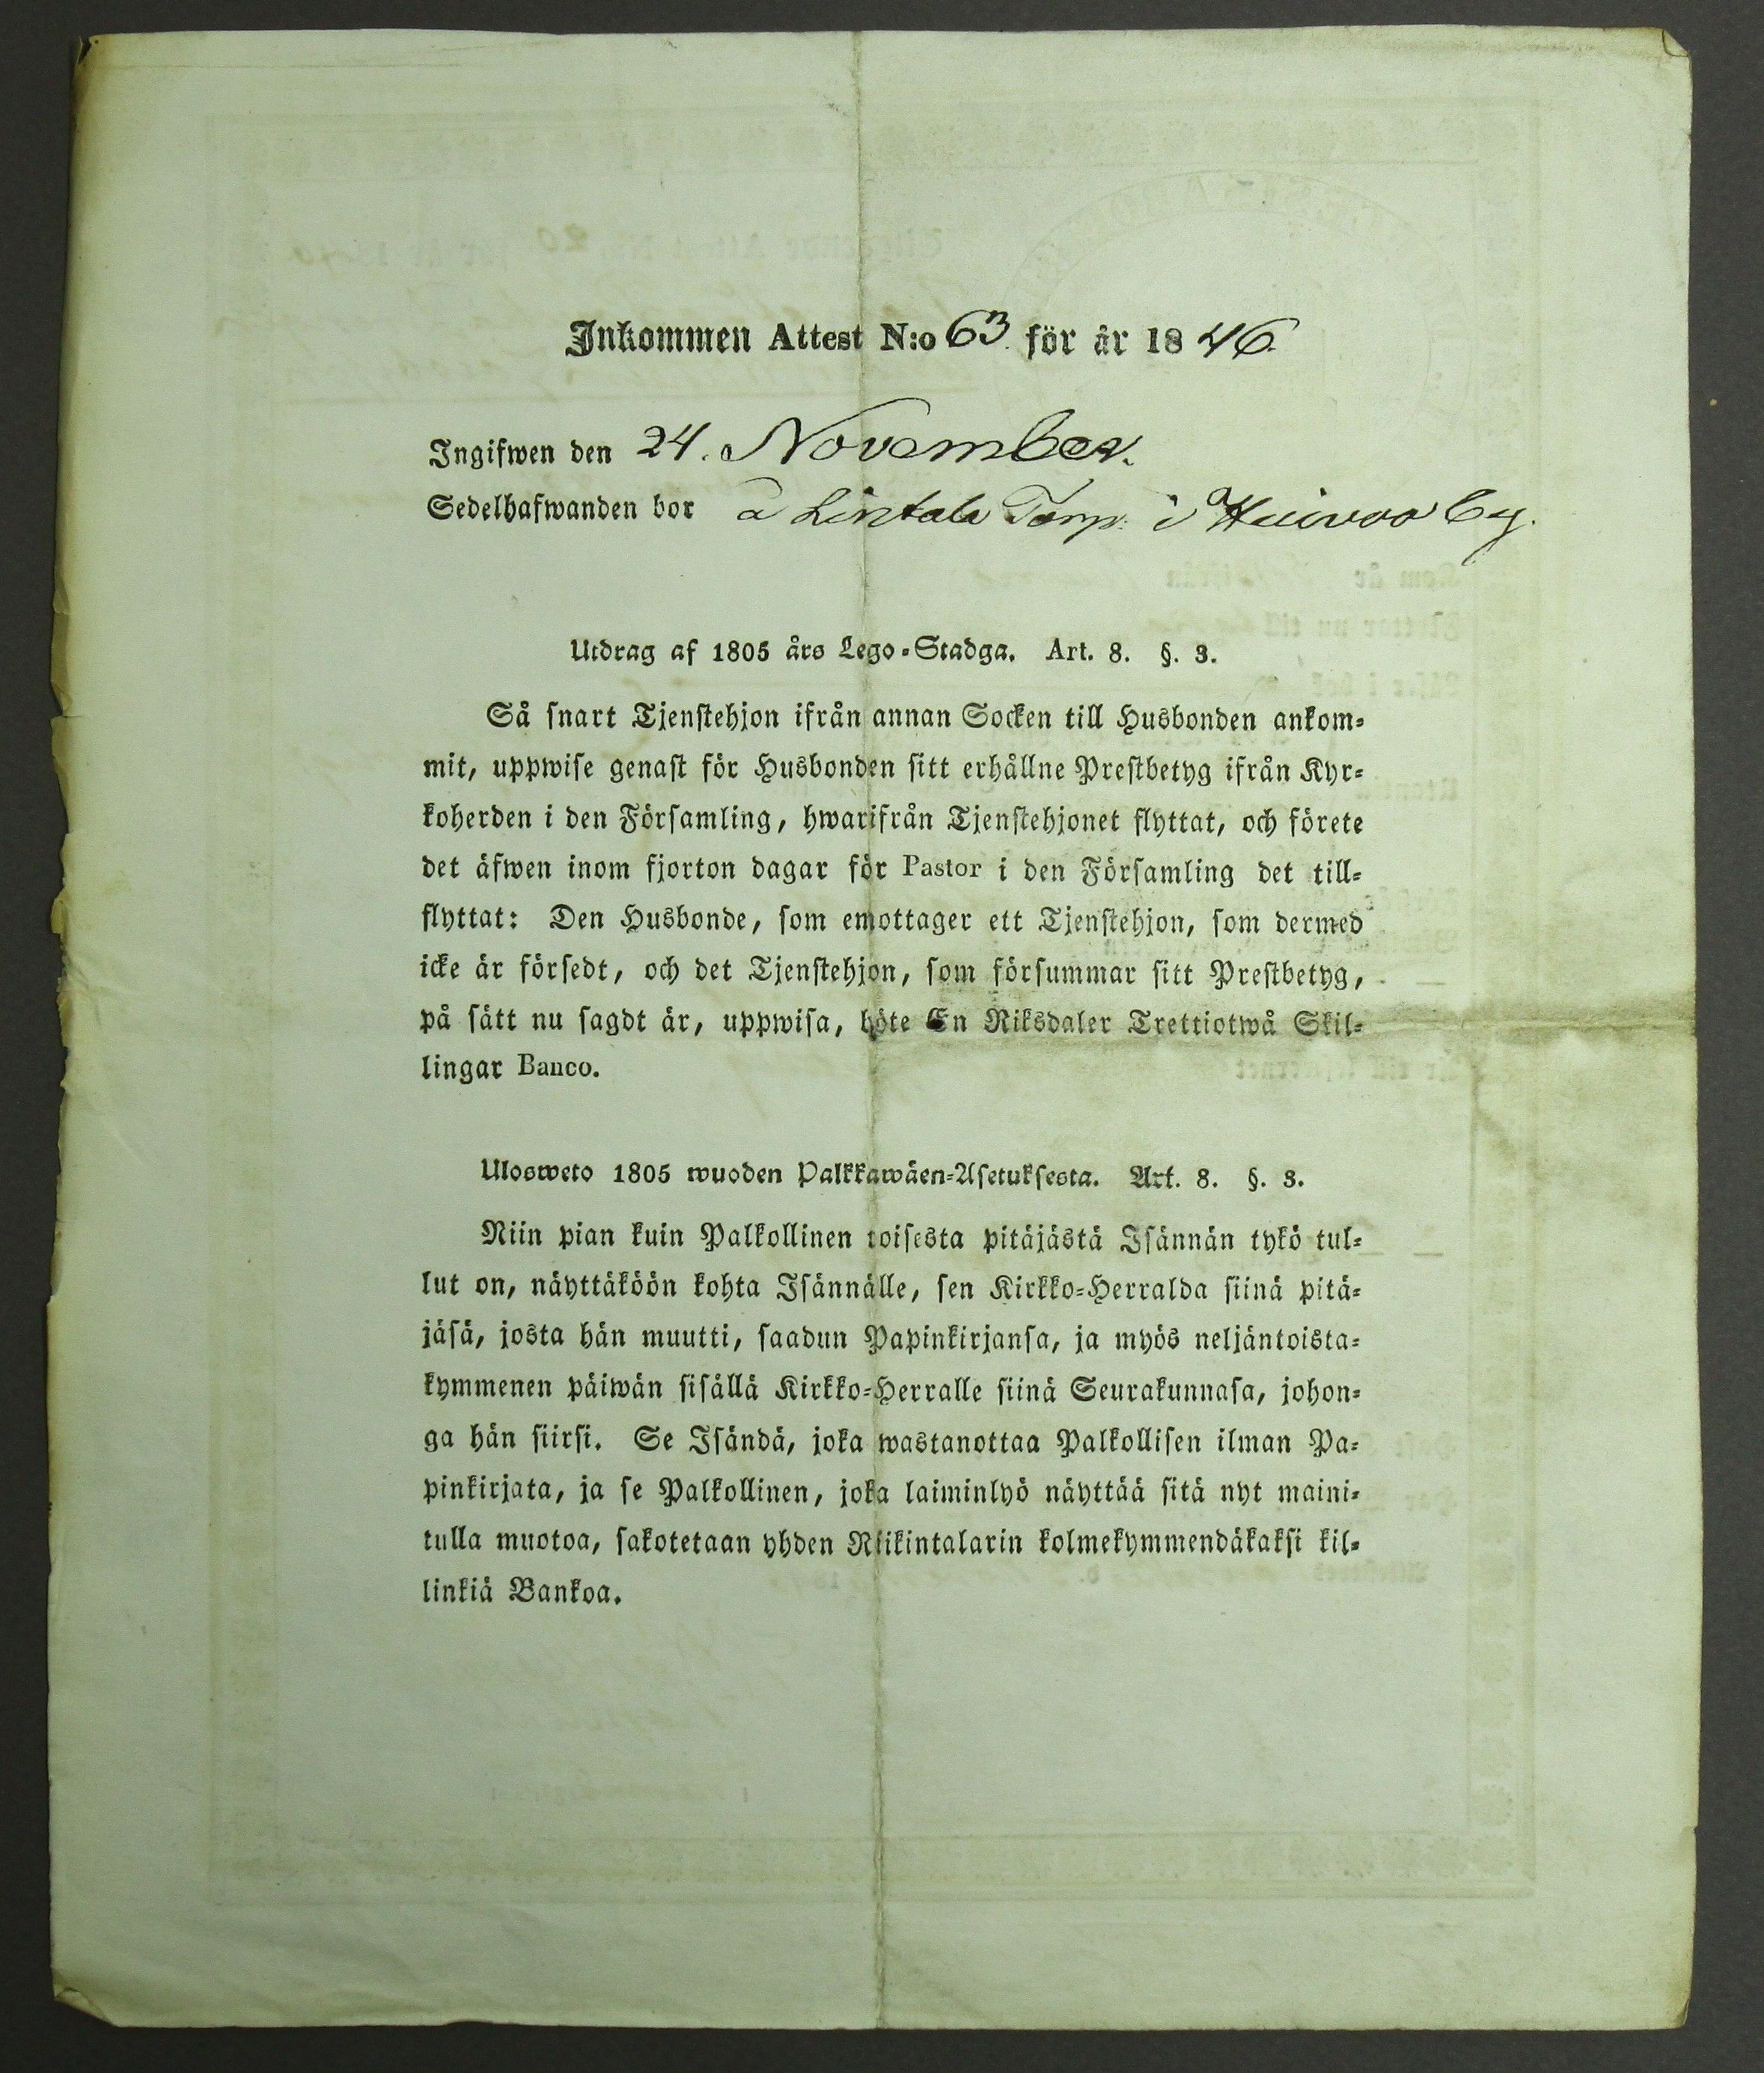 Inkommen Attest N:o 63 för år 1846.
Ingifwen den 24. November.
Sedelhafwanden bor å Lintala Torp i by.
Utdrag af 1805 års Lego-Stadga. Art. 8. §. 3.
Så snart Tjenstehjon ifrån annan Socken till Husbonden ankom-
mit, uppwise genast för Husbonden sitt erhållne Prestbetyg ifrån Kyr-
koherden i den Församling, hwarifrån Tjenstehjonet flyttat, och förete
det äfwen inom fjorton dagar för Pastor i den Församling det till-
flyttat: Den Husbonde, som emottager ett Tjenstehjon, som dermed
icke är försedt, och det Tjenstehjon, som försummar sitt Prestbetyg,
på sätt nu sagdt är, uppwisa, böte En Riksdaler Trettiotwå Skil-
lingar Banco.
Ulosweto 1805 wuoden Palkkawäen-Asetuksesta. Art. 8. §. 3.
Niin pian kuin Palkollinen toisesta pitäjästä Isännän tykö tul-
lut on, näyttäköön kohta Isännälle, sen Kirkko-Herralda siinä pitä-
jäsä, josta hän muutti, saadun Papinkirjansa, ja myös neljäntoista-
kymmenen päiwän sisällä Kirkko-Herralle siinä Seurakunnasa, johon-
ga hän siirsi. Se Isändä, joka wastanottaa Palkollisen ilman Pa-
pinkirjata, ja se Palkollinen, joka laiminlyö näyttää sitä nyt maini-
tulla muotoa, sakotetaan yhden Riikintalarin kolmekymmendäkaksi kil-
linkiä Bankoa.